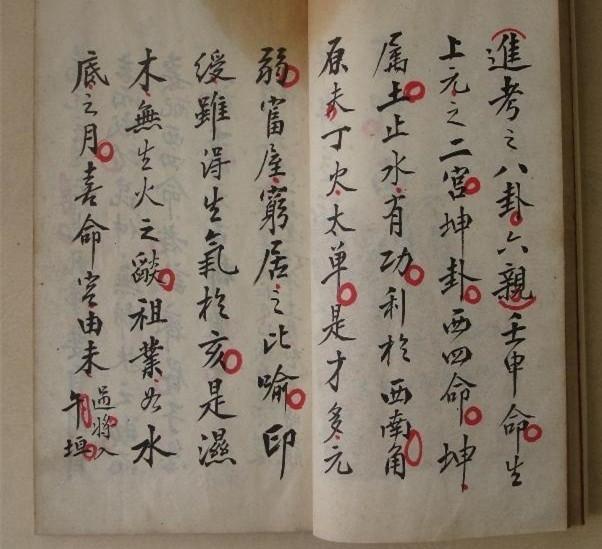 進考之八卦六親壬申命生
上元之二宮坤卦西四命坤
属土止水有功利於西南角
原未丁火太單是才多元
弱富屋窮居之比喻印
绶雖得生氣於亥是濕
木無生火之燄祖業如水
底之月喜命宮由未過將入
午垣